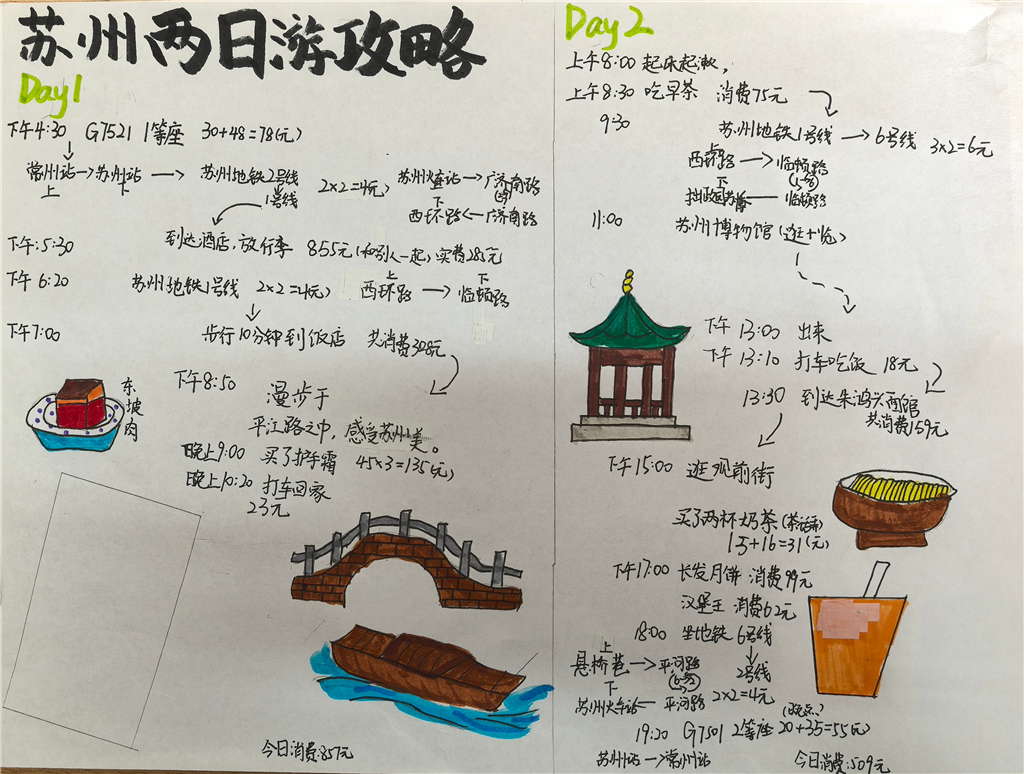 苏州两日游攻略
Day1
下午4:30 G7521 1等座 30+48=78(元)
常州站→苏州站→ 苏州地铁2号线 2×2=4元 苏州火车站→广济南路
上 下 1号线 下
西环路←广济南路
到达酒店,放行李 855元(和别人一起)实费285元
下午:5:30
下午6:20 苏州地铁1号线 2×2=4(元) 上西环路→下临顿路
下午7:00 步行10分钟到饭店 共消费328元
下午8:50 漫步于
平江路之中,感受苏州之美。
东坡肉
晚上9:00 买了护手霜 45×3=135(元)
晚上10:20 打车回家
23元
今日消费:857元
Day2
上午8:00 起床起漱,
上午8:30 吃早茶 消费75元
9:30 苏州地铁1号线→6号线 3×2=6元
上
西环路→临顿路
下
拙政园苏博←临顿路
11:00 苏州博物馆(逛+览)
下午13:00 出来
下午13:10 打车吃饭 18元
13:30 到达朱鸿兴面馆
共消费159元
下午15:00 逛观前街
买了两杯奶茶(茶话弄)
15+16=31(元)
下午17:00 长发月饼 消费99元
汉堡王 消费62元
18:00 坐地铁 6号线
上
悬桥巷→平河路 2号线
下
苏州火车站←平河路 2×2=4元
19:20 G7501 2等座 20+35=55(元)
苏州站→常州站
今日消费:509元